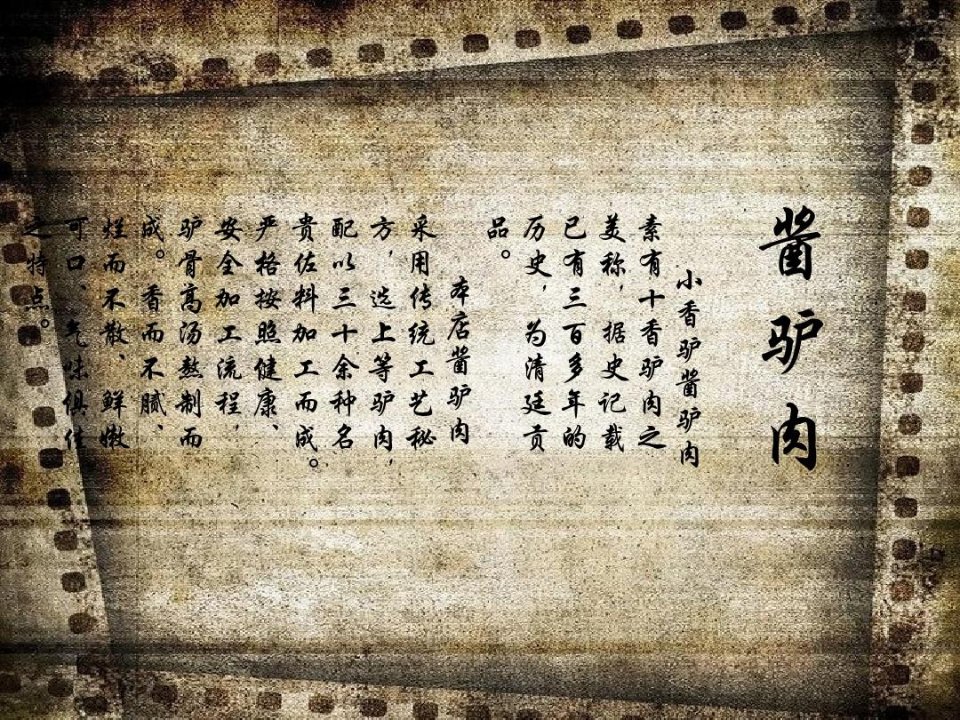 酱驴肉
小香驴酱驴肉
素有十香驴肉之
美称，据史记载
已有三百多年的
历史，为清廷贡
品。
本店酱驴肉
采用传统工艺秘
方，选上等驴肉，
配以三十余种名
贵佐料加工而成。
严格按照健康、
安全加工流程，
驴骨高汤熬制而
成。香而不腻、
烂而不散、鲜嫩
可口、气味俱佳
之特点。